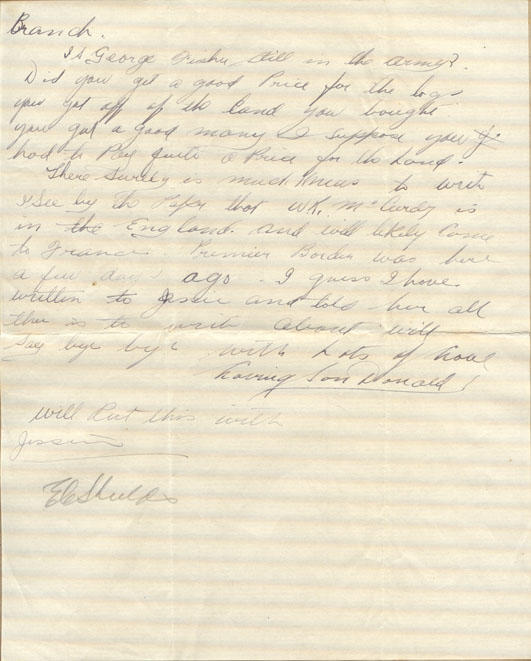 Branch.
Is George Fisher still in the army?
Did you get a good Price for the logs
you got off of the land you bought
you got a good many I suppose you
had to Pay quite a Price for the Land.
There Surely is much knews to write
I See by the Paper that WK. McCurdy is
in the England and will likely Come
to France. Premier Borden was here
a few days ago. I guess I have
written to Jessie and told her all
there is to write about will
Say bye bye with Lots of Love
Loving Son Donald
will Put this with
Jessie